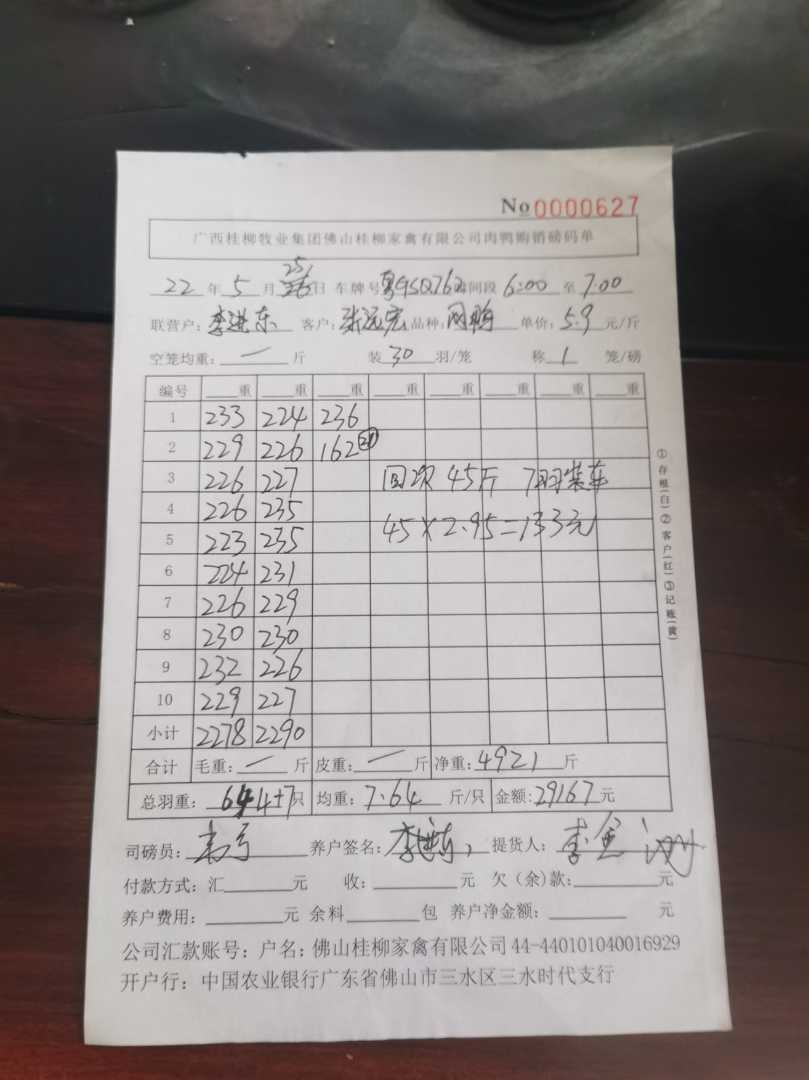 No 0000627
广西桂柳牧业集团佛山桂柳家禽有限公司肉鸭购销磅码单
22 年 5 月 25 日 车牌号 时间段 6:00 至 7:00
联营户: 李进东 客户: 张远宏 品种: 单价: 5.9 元/斤
空笼均重: 一 斤 装 30 羽/笼 称 1 笼/磅
编号 重 重 重 重 重 重 重 重
1 233 224 236
2 229 226 162 21
3 226 227 回次 45斤 7羽装车
4 226 235
5 223 235 45×2.95=133元
6 224 231
7 226 229
8 230 230
9 232 226
10 229 227
小计 2278 2290
合计 毛重: 一 斤 皮重: 一 斤 净重: 4921 斤
总羽重: 644+7 只 均重: 7.64 斤/只 金额: 29167 元
司磅员: 养户签名: 李进东 提货人: 李
付款方式: 汇 元 收: 元 欠(余)款: 元
养户费用: 元 余料 包 养户净金额: 元
公司汇款账号: 户名: 佛山桂柳家禽有限公司 44-440101040016929
开户行: 中国农业银行广东省佛山市三水区三水时代支行
①存根(白)②客户(红)③记账(黄)